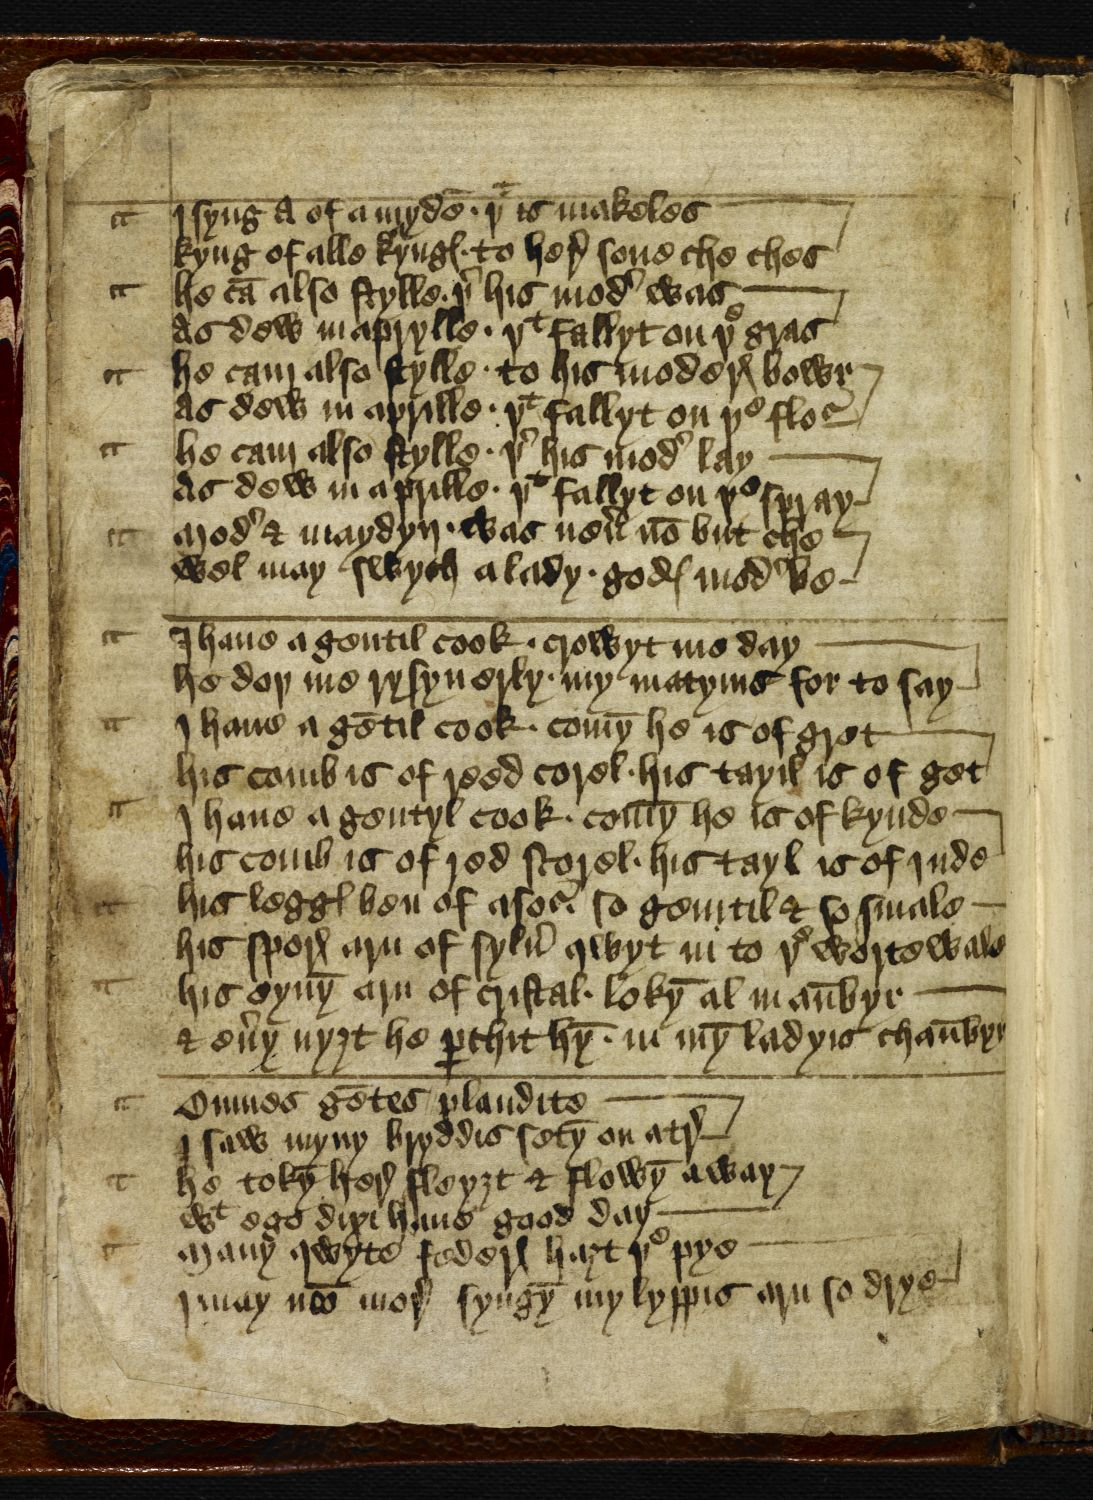 I syng A of a mydē · þͭ is makeles
kyng of alle kynge · to herꝰ sone che ches
he cā also stylle · þͬ his modꝰ was
As dew in aprylle · þͭ fallyt on þͤ gras
he cam also stylle · to his moderꝭ bowr
As dew in aprille · þͭ fallyt on þͤ flour
he cam also stylle · þͬ his modꝰ lay
As dew in aprille · þͭ fallyt on þͤ spray
modꝰ & maydyn · was neuꝰ nō but che
wel may swych a lady · godꝭ modꝰ be
I haue a gentil cook · crowyt me day
he doþ me rysyn erly · my matyins for to say
I haue a gētil cook · comȳ he is of gret
his comb is of reed corel · his tayil is of get
I haue a gentyl cook · comȳ he is of kynde
his comb is of red scorel · his tayl is of inde
his leggꝭ ben of asour so gentil & so smale
his sporꝭ arn of syluꝰ qwyt in to þͤ wortewale
his eynȳ arn of cristal · lokȳ al in aūbyr
& euꝰy nyȝt he ꝑchit hȳ · in mȳ ladyis chaūbyr
Omnes gētes plaudite
I saw myny bryddis setȳ on a trꝰ
he tokȳ herꝰ fleyȝt & flowȳ away
wͭ ego dixi haue good day
Many qwyte federꝭ haȝt þͤ pye
I may noo morꝰ syngȳ my lyppis arn so drye